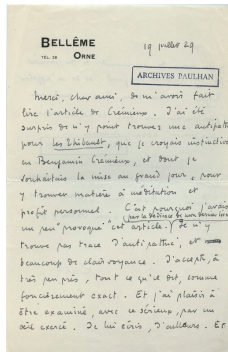 BELLÊME
TÉL. 26 ORNE
19 juillet 29
ARCHIVES PAULHAN
Merci, cher ami, de m'avoir fait
lire l'article de Crémieux. J'ai été
surpris de n'y point trouver une antipathie
pour les Thibault, que je croyais instinctive
en Benjamin Crémieux, et dont je
souhaitais la mise au grand jour, pour
y trouver matière à méditation et
profit personnel. C'est pourquoi j'avais
un peu "provoqué" cet article. Je n'y
par la dédicace de mon dernier livre
trouve pas trace d'antipathie, et
beaucoup de clairvoyance. J'accepte, à
très peu près, tout ce qu'il dit, comme
foncièrement exact. Et j'ai plaisir à
être examiné, avec ce sérieux, par un
œil exercé. Je lui écris, d'ailleurs. Et